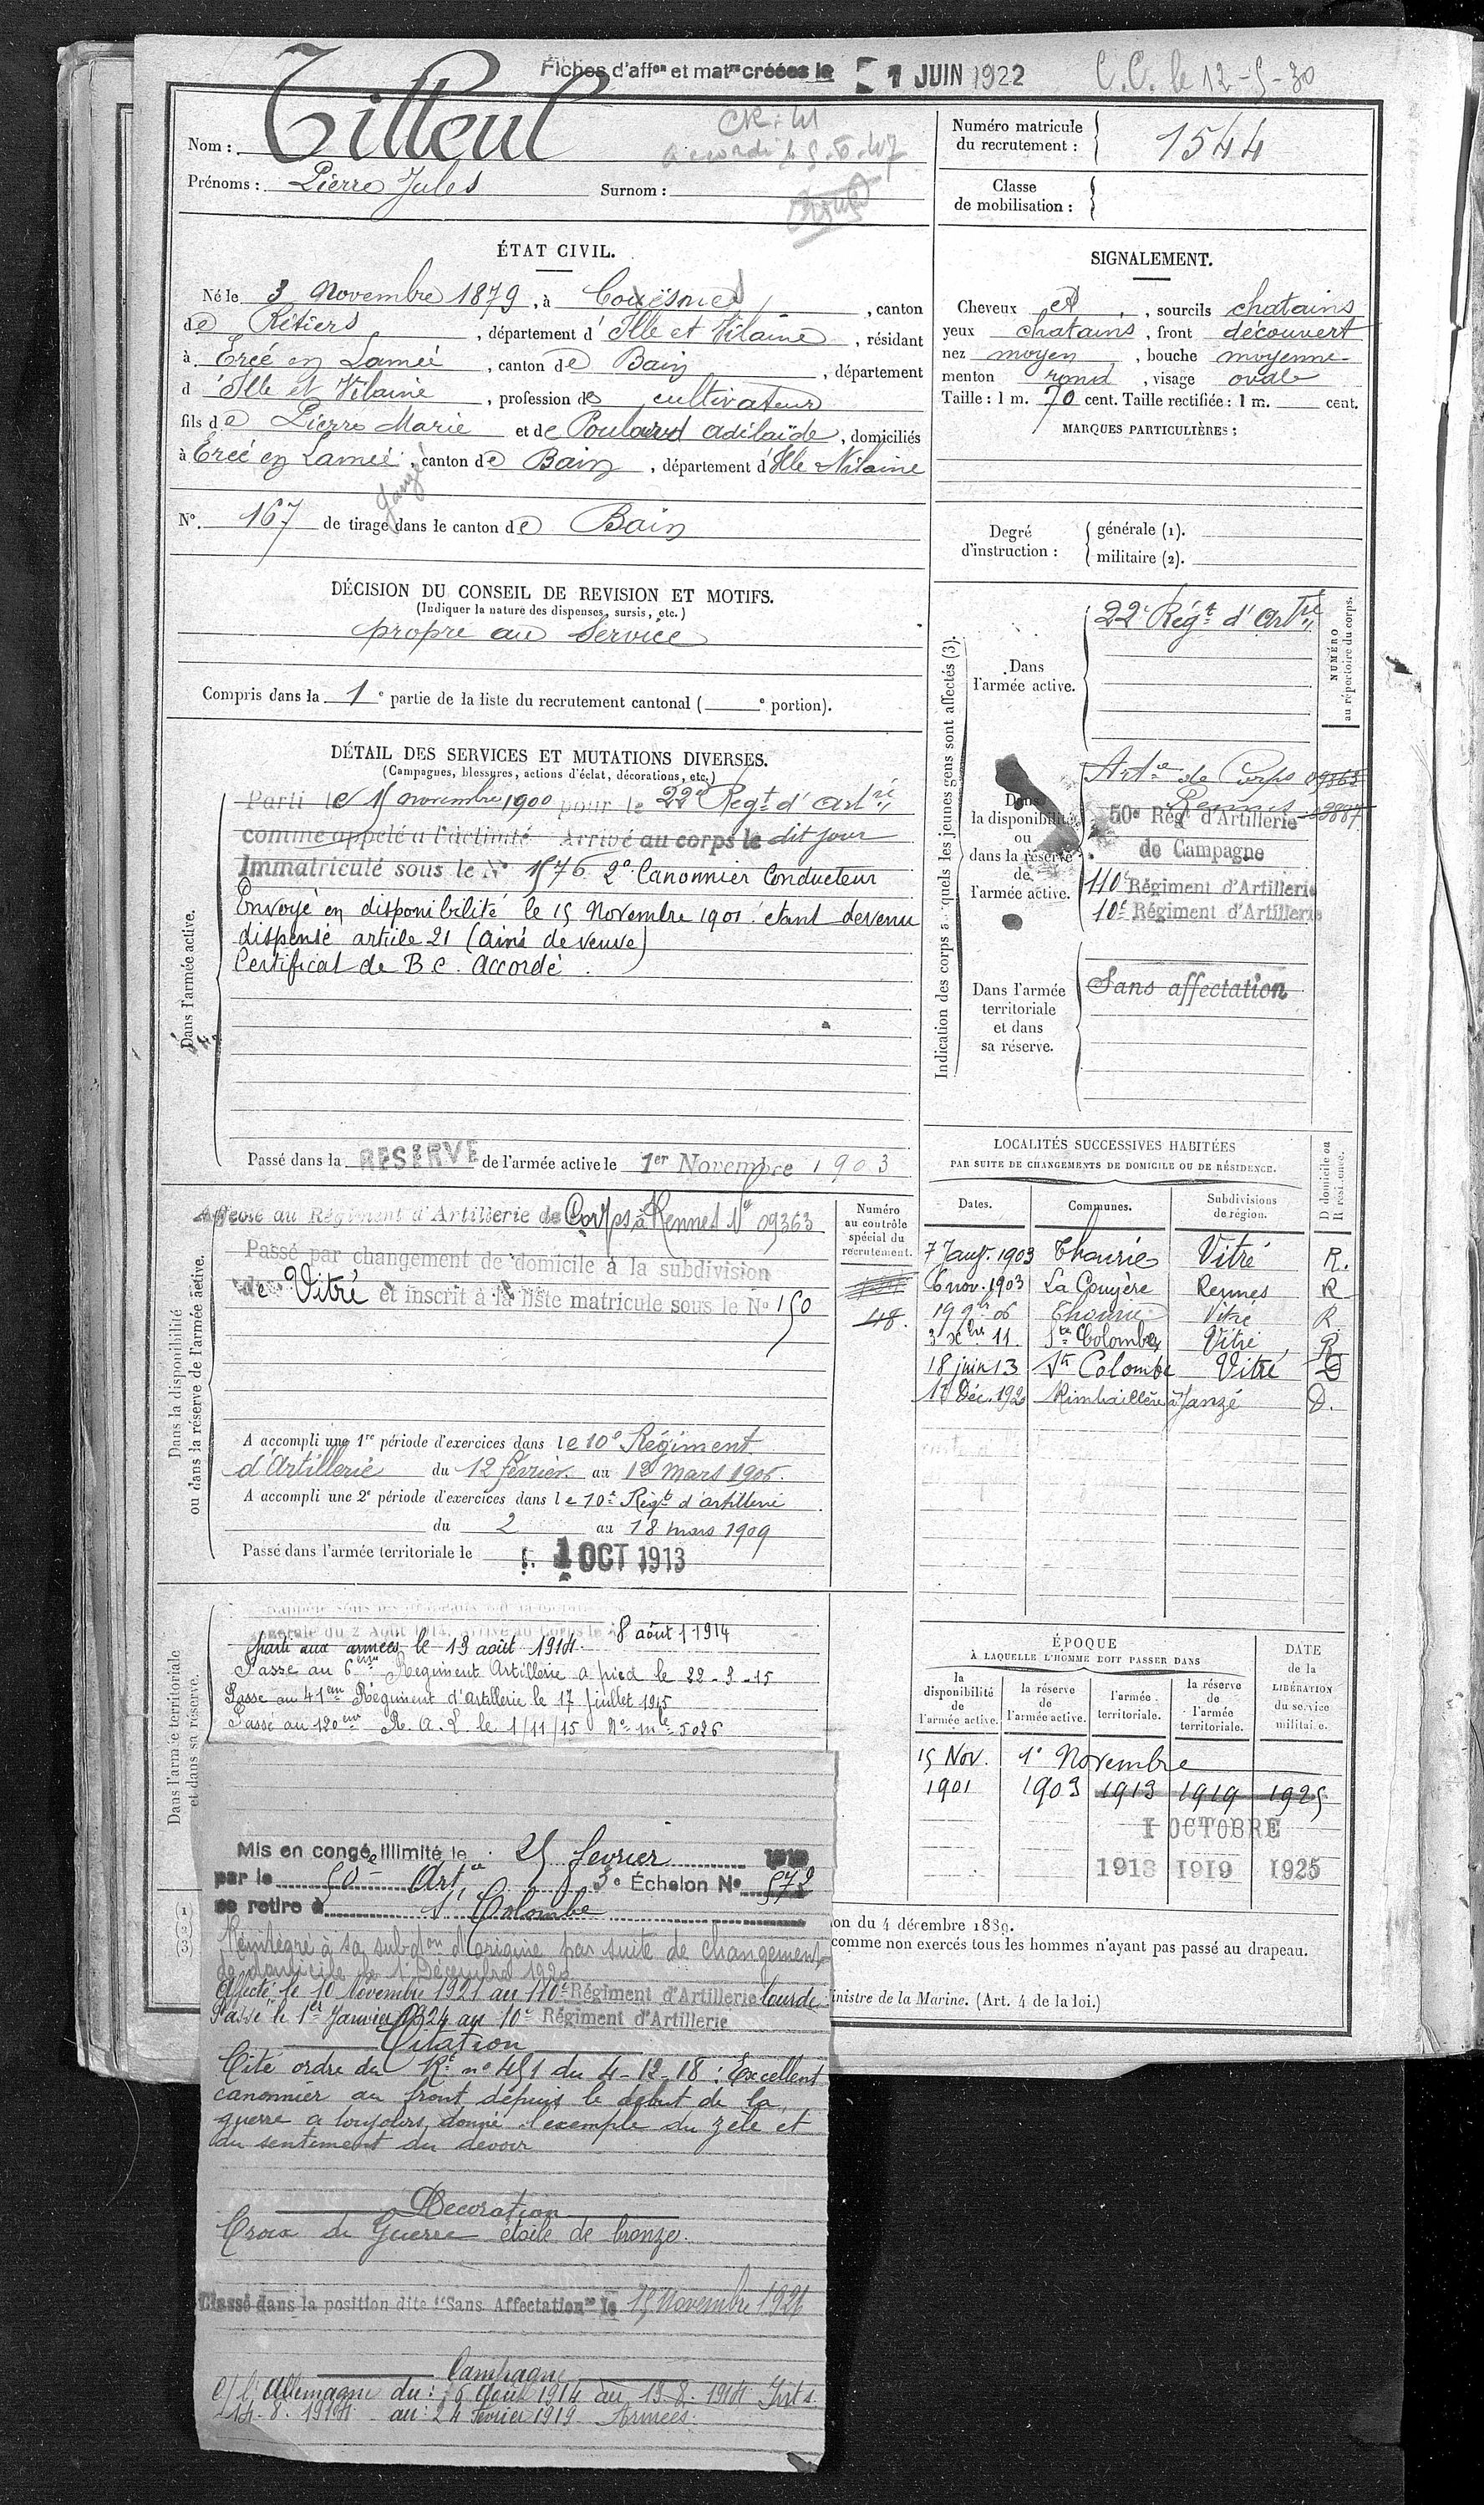 Fiches d'affon et matre créées le 1 JUIN 1922
C.C. le 12-5-30
Nom : Tilleul
Prénoms : Pierre Jules Surnom :
Numéro matricule du recrutement : 1544
Classe de mobilisation :
ÉTAT CIVIL.
Né le 3 Novembre 1879, à Coësmes, canton
de Rétiers, département d'Ille et Vilaine, résidant
à Ercé en Lamée, canton de Bain, département
d'Ille et Vilaine, profession de cultivateur
fils de Pierre Marie et de Poulard Adélaïde, domiciliés
à Ercé en Lamée, canton de Bain, département d'Ille & Vilaine
Janzé
N°. 167 de tirage dans le canton de Bain
SIGNALEMENT.
Cheveux et, sourcils chatains
yeux chatains, front découvert
nez moyen, bouche moyenne
menton rond, visage ovale
Taille : 1 m. 70 cent. Taille rectifiée : 1 m. cent.
MARQUES PARTICULIÈRES :
Degré d'instruction : générale (1).
militaire (2).
DÉCISION DU CONSEIL DE REVISION ET MOTIFS.
(Indiquer la nature des dispenses, sursis, etc.)
propre au Service
Compris dans la 1e partie de la liste du recrutement cantonal ( e portion).
DÉTAIL DES SERVICES ET MUTATIONS DIVERSES.
(Campagnes, blessures, actions d'éclat, décorations, etc.)
Dans l'armée active.
Parti le 15 novembre 1900 pour le 22e Regt d'artrie
comme appelé à l'activité Arrivé au corps le dit jour
Immatriculé sous le N° 1576 2e Canonnier Conducteur
Envoyé en disponibilité le 15 Novembre 1901 étant devenu
dispensé article 21 (ainé de veuve)
Certificat de B.C. Accordé.
Passé dans la RESERVE de l'armée active le 1er Novembre 1903
Indication des corps auxquels les jeunes gens sont affectés (3).
NUMÉRO au répertoire du corps.
Dans l'armée active.
22e Régt d'Artrie
Dans la disponibilité ou dans la réserve de l'armée active.
Artie de Corps 09363
Rennes
50e Rég. d'Artillerie
de Campagne
110e Régiment d'Artillerie
10e Régiment d'Artillerie
Dans l'armée territoriale et dans sa réserve.
Sans affectation
Dans la disponibilité ou dans la réserve de l'armée active.
Affecté au Régiment d'Artillerie de Corps à Rennes N° 09363
Passé par changement de domicile à la subdivision
de Vitré et inscrit à la liste matricule sous le N° 150
Numéro au contrôle spécial du recrutement.
48.
A accompli une 1re période d'exercices dans le 10e Régiment
d'Artillerie du 12 février au 12 mars 1906.
A accompli une 2e période d'exercices dans le 10e Régt d'artillerie
du 2 au 18 mars 1909
Passé dans l'armée territoriale le 1 OCT 1913
LOCALITÉS SUCCESSIVES HABITÉES
PAR SUITE DE CHANGEMENTS DE DOMICILE OU DE RÉSIDENCE.
Dates. Communes. Subdivisions de région. D domicile ou R résidence.
7 Janv. 1903 Thourie Vitré R.
6 nov. 1903 La Couyère Rennes R
19 9bre 06 Thourie Vitré R
3 Xbre 11. Ste Colombe Vitré R
18 juin 13 Ste Colombe Vitré D
1er Déc. 1920 Janzé D.
Dans l'armée territoriale et dans sa réserve.
8 août 1914
Parti aux armées le 13 août 1914.
Passé au 6ème Régiment Artillerie à pied le 22-3-15
Passé au 41em Régiment d'artillerie le 17 juillet 1915
Passé au 120em R.A.L. le 1/11/15 N° mle 5026
ÉPOQUE
À LAQUELLE L'HOMME DOIT PASSER DANS
la disponibilité de l'armée active. la réserve de l'armée active. l'armée territoriale. la réserve de l'armée territoriale. DATE de la LIBÉRATION du service militaire.
15 Nov. 1er Novembre
1901 1903 1913 1919 1925
1 OCTOBRE
1913 1919 1925
Mis en congé illimité le 25 fevrier 1919
par le 50e Artie 3e Échelon N° 572
se retire à Ste Colombe
Réintégré à sa subdon d'origine par suite de changement
de domicile le 1er Décembre 1920
Affecté le 10 Novembre 1921 au 110e Régiment d'Artillerie lourde
Passé le 1er Janvier 1924 au 10e Régiment d'Artillerie
Citation
Cité ordre du Rt n° 451 du 4-12-18 : Excellent
canonnier au front depuis le début de la
guerre a toujours donné l'exemple du zèle et
du sentiment du devoir
Decoration
Croix de Guerre étoile de bronze.
Classé dans la position dite "Sans Affectation" le 15 Novembre 1926
Campagne
C/ l'Allemagne du : 6 Août 1914 au 13.8.1914 Int s.
14.8.1914 au : 24 février 1919 Armées.
ion du 4 décembre 1889.
comme non exercés tous les hommes n'ayant pas passé au drapeau.
inistre de la Marine. (Art. 4 de la loi.)